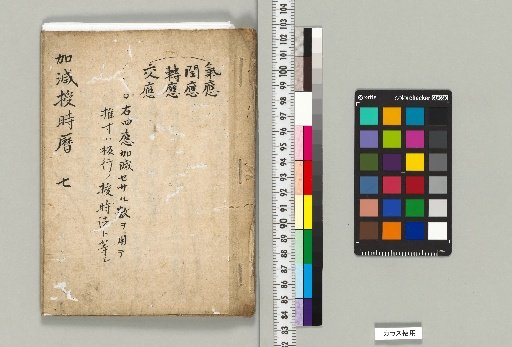 氣應
閏應
轉應
交應
右四應加減セサル数ヲ用テ
推寸ハ板行ノ授時法ト等シ
加減授時暦 七
104
103
102
101
100
99
98
97
96
95
94
93
92
91
90
89
88
87
86
85
84
83
82
x-rite
colorchecker
ガラス使用